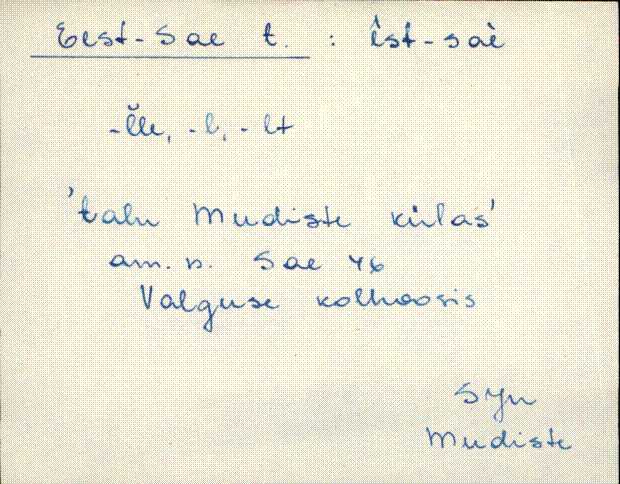 Eest-Sae t. : ê̬st-saè
-l̆le, -l, -lt
'talu Mudiste külas'
am. n. Sae 46
Valguse kolhoosis
SJn
Mudiste